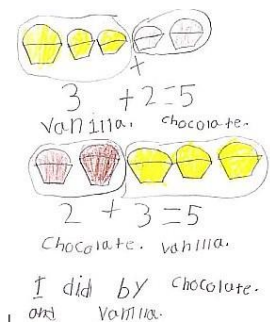 +
3 +2=5
vanilla. chocolate.
2 + 3=5
Chocolate. vanilla.
I did by chocolate.
and Vanilla.